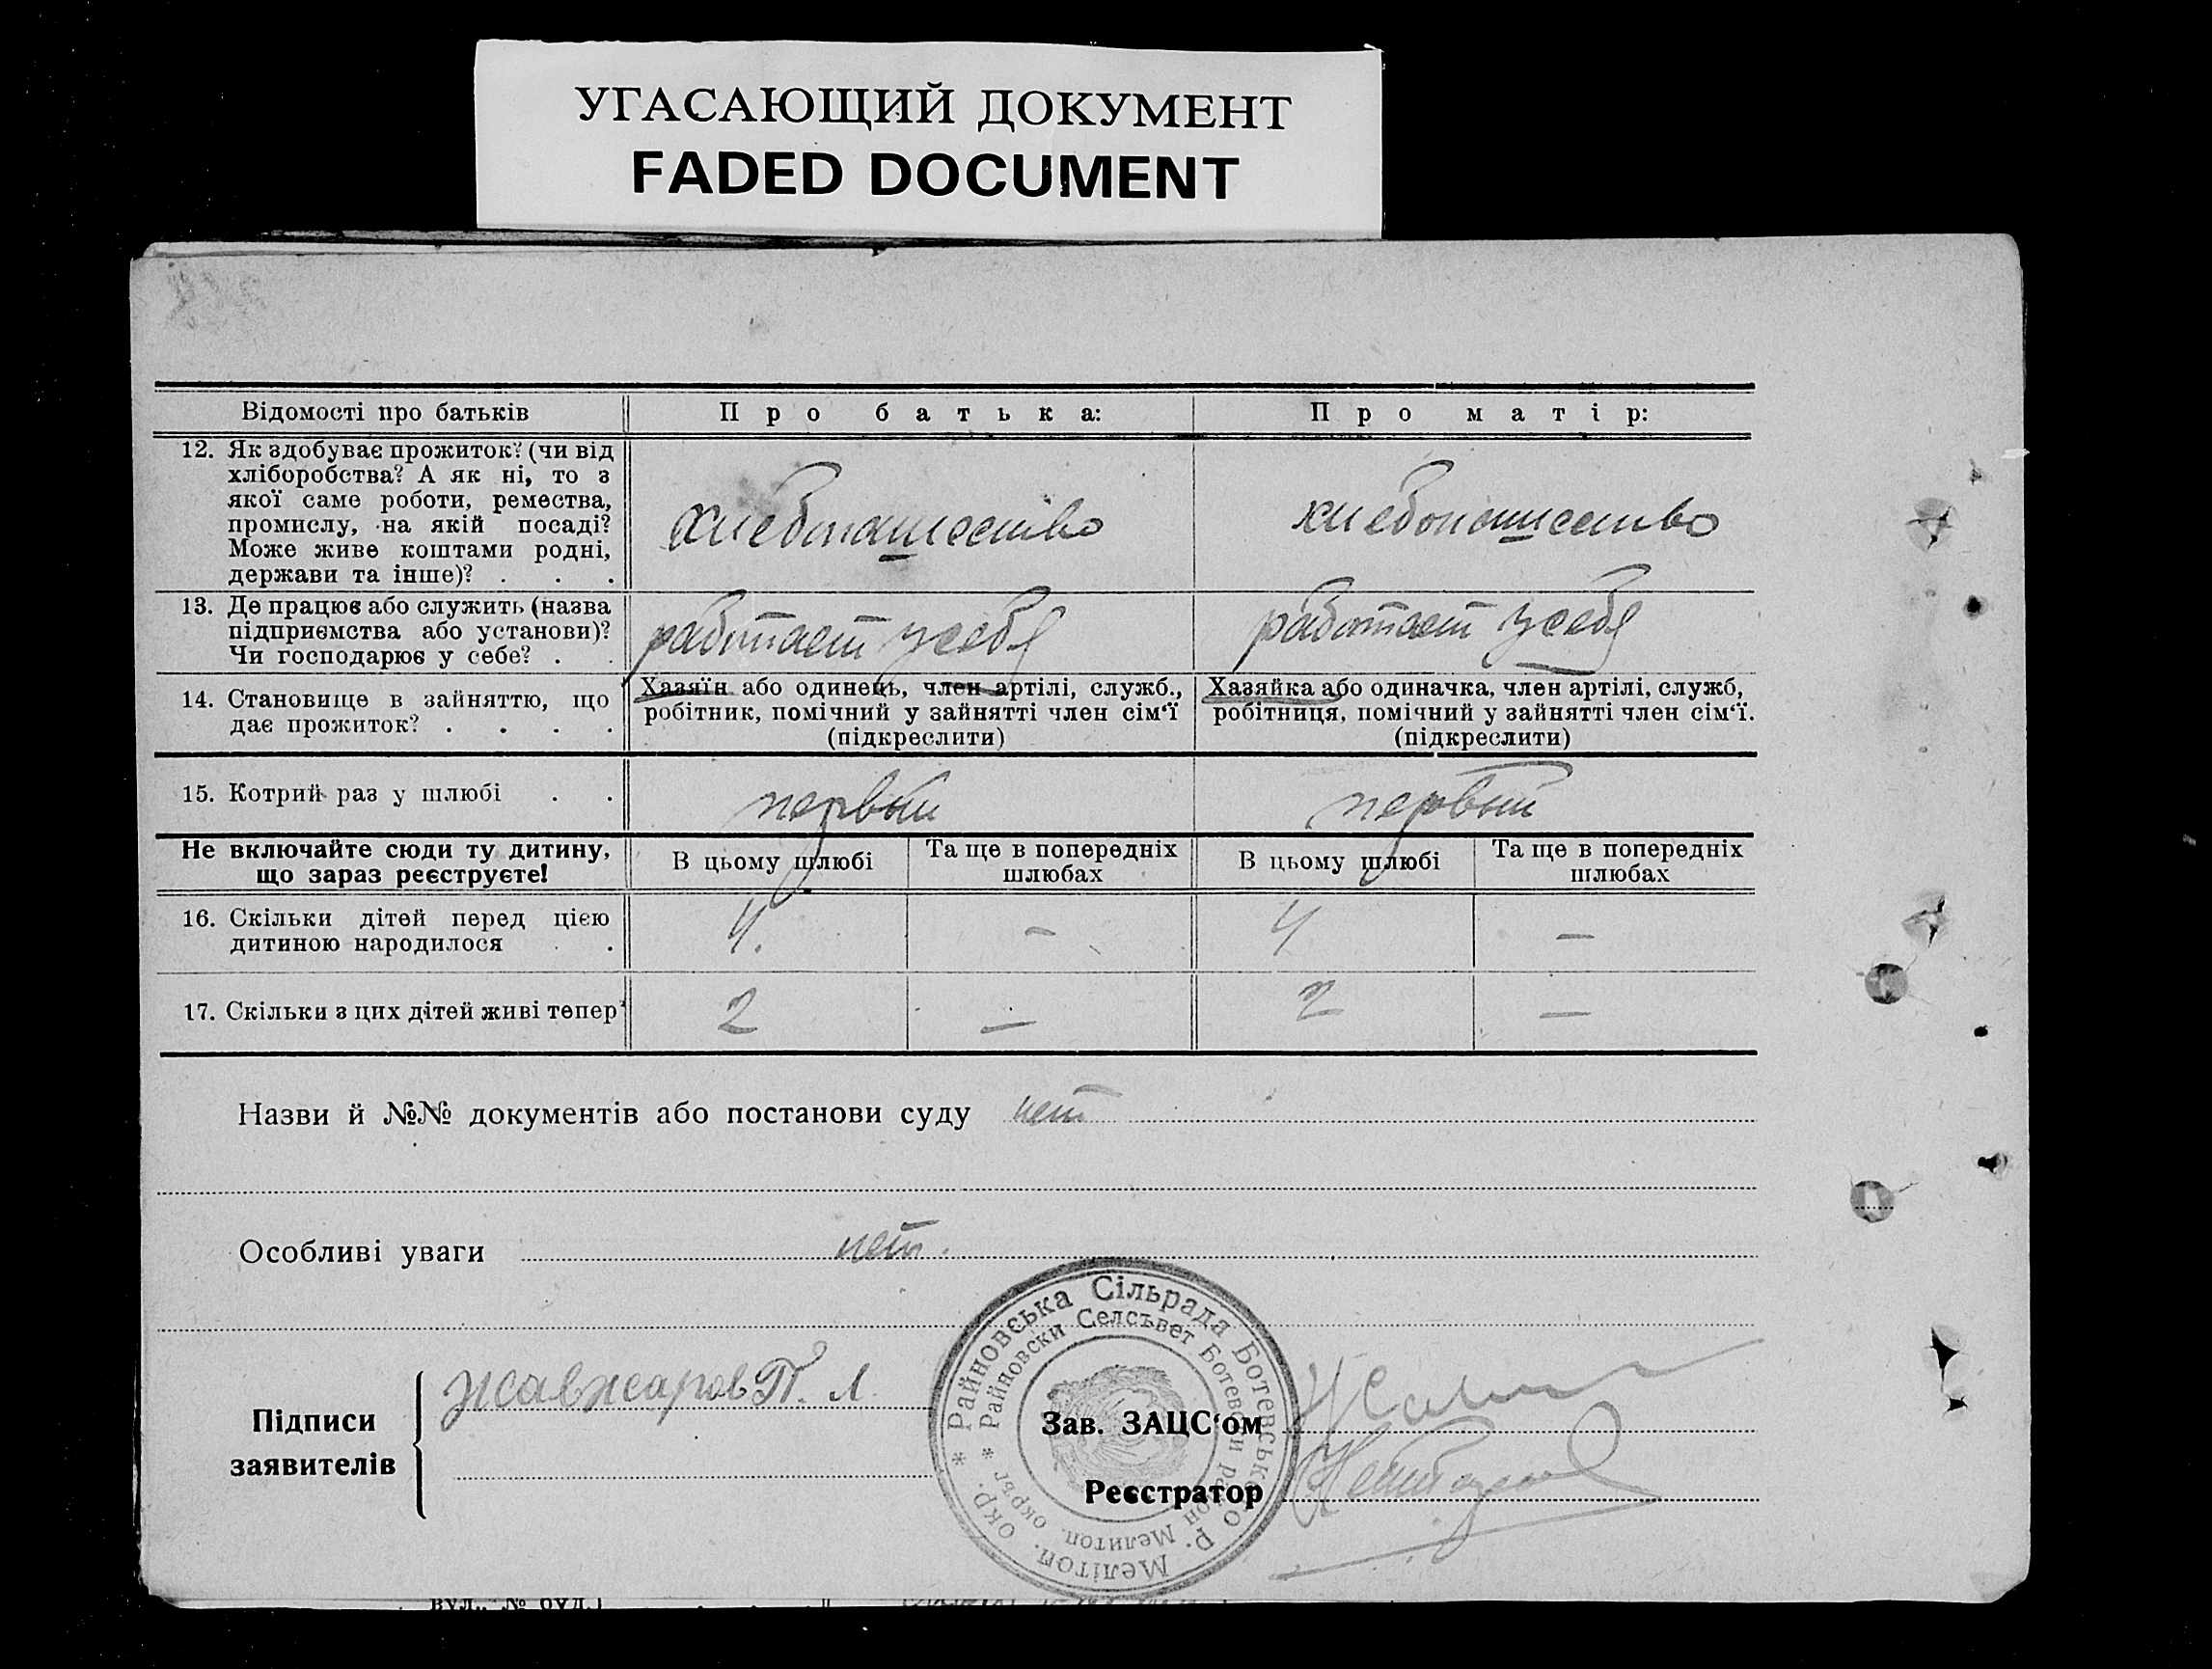 УГАСАЮЩИЙ ДОКУМЕНТ
FADED DOCUMENT
Відомості про батьків
Про батька:
Про матір:
12. Як здобуває прожиток? (чи від
хліборобства? А як ні, то з
якої саме роботи, ремества,
промислу, на якій посаді?
Може живе коштами родні,
держави та інше)? . . .
хлебопашество
хлебопашество
13. Де працює або служить (назва
підприємства або установи)?
Чи господарює у себе? . .
работает у себя
работает у себя
14. Становище в зайняттю, що
дає прожиток? . . . .
Хазяїн або одинець, член артілі, служб.,
робітник, помічний у зайнятті член сім'ї
(підкреслити)
Хазяйка або одиначка, член артілі, служб,
робітниця, помічний у зайнятті член сім'ї.
(підкреслити)
15. Котрий раз у шлюбі . .
первый
первый
Не включайте сюди ту дитину,
що зараз реєструєте!
В цьому шлюбі
Та ще в попередніх
шлюбах
В цьому шлюбі
Та ще в попередніх
шлюбах
16. Скільки дітей перед цією
дитиною народилося . .
4. — 4 —
17. Скільки з цих дітей живі тепер?
2 — 2 —
Назви й №№ документів або постанови суду нет
Особливі уваги нет.
Підписи
заявителів
Жавжаров П. Л.
Зав. ЗАЦС'ом
Реєстратор
* Райновська Сільрада Ботевського р. Мелітоп. окр.
* Райновски Селсъвет Ботевски район Мелитоп. окръг
вул., № буд.)